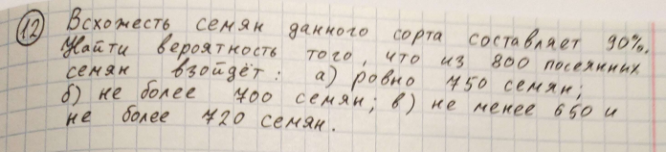 12 Всхожесть семян данного сорта составляет 90%.
Найти вероятность того, что из 800 посеянных
семян взойдёт: а) ровно 750 семян;
б) не более 700 семян; в) не менее 650 и
не более 720 семян.